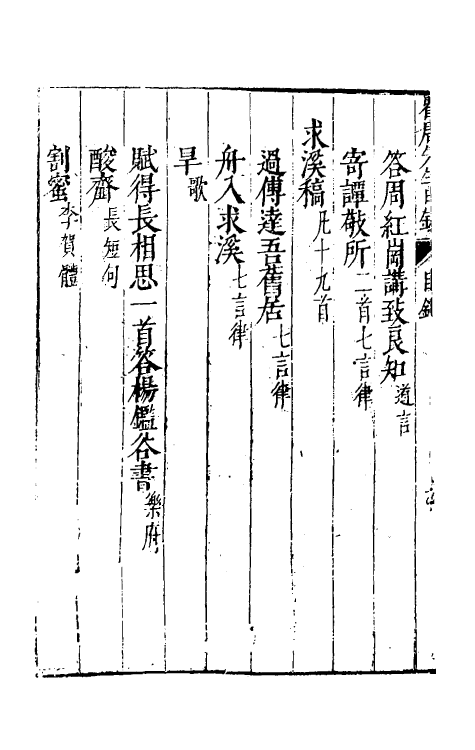 答周紅崗講致良知 道言
寄譚敬所 二首七言律
求溪稿 凡十九首
過傅達吾舊居 七言律
舟入求溪 七言律
旱 歌
賦得長相思一首答楊鑑谷書 樂府
酸齏 長短句
割蜜 李賀體